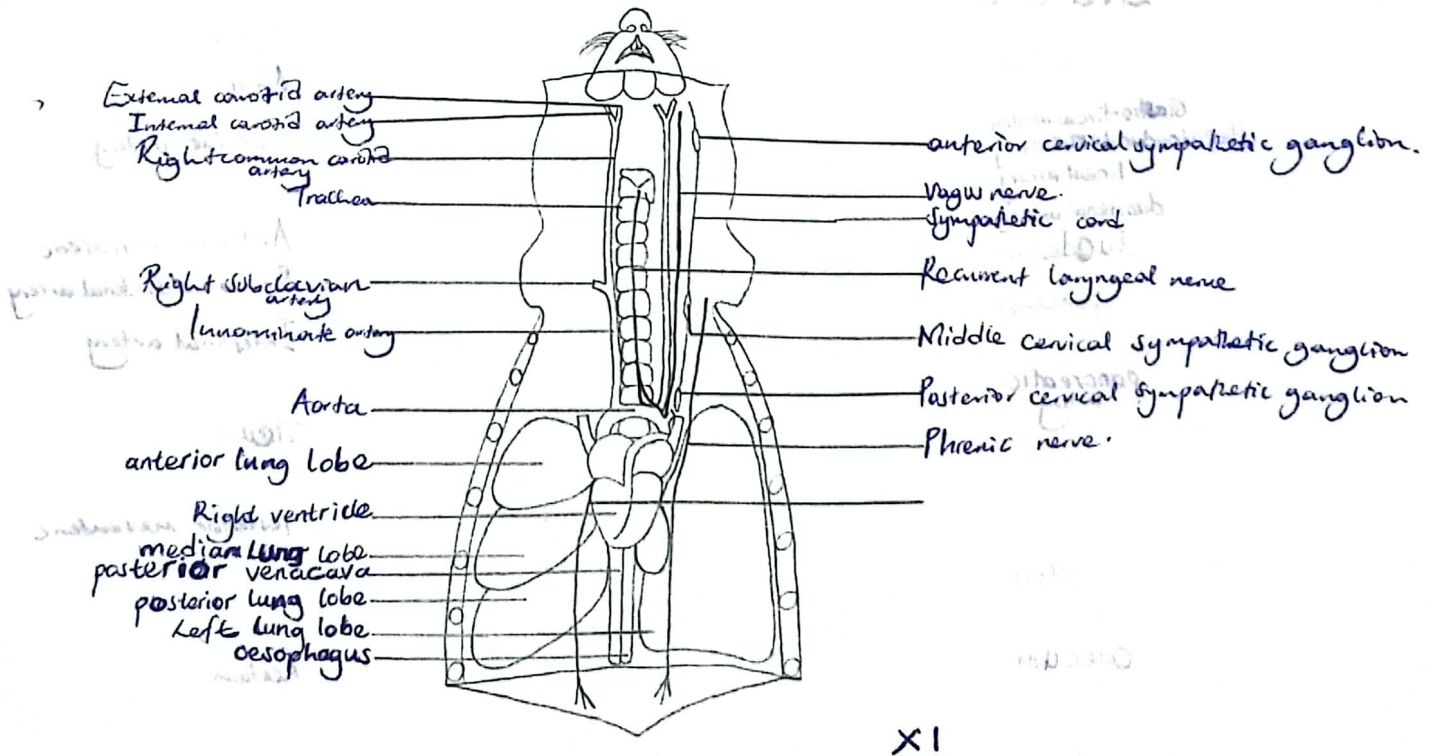 External carotid artery
Internal carotid artery
Right common carotid
artery
Trachea
Right subclavian
artery
Innominate artery
Aorta
anterior lung lobe
Right ventricle
median lung lobe
posterior venacava
posterior lung lobe
Left lung lobe
oesophagus
anterior cervical sympathetic ganglion.
Vagus nerve.
Sympathetic cord
Recurrent laryngeal nerve
Middle cervical sympathetic ganglion
Posterior cervical sympathetic ganglion
Phrenic nerve.
X1